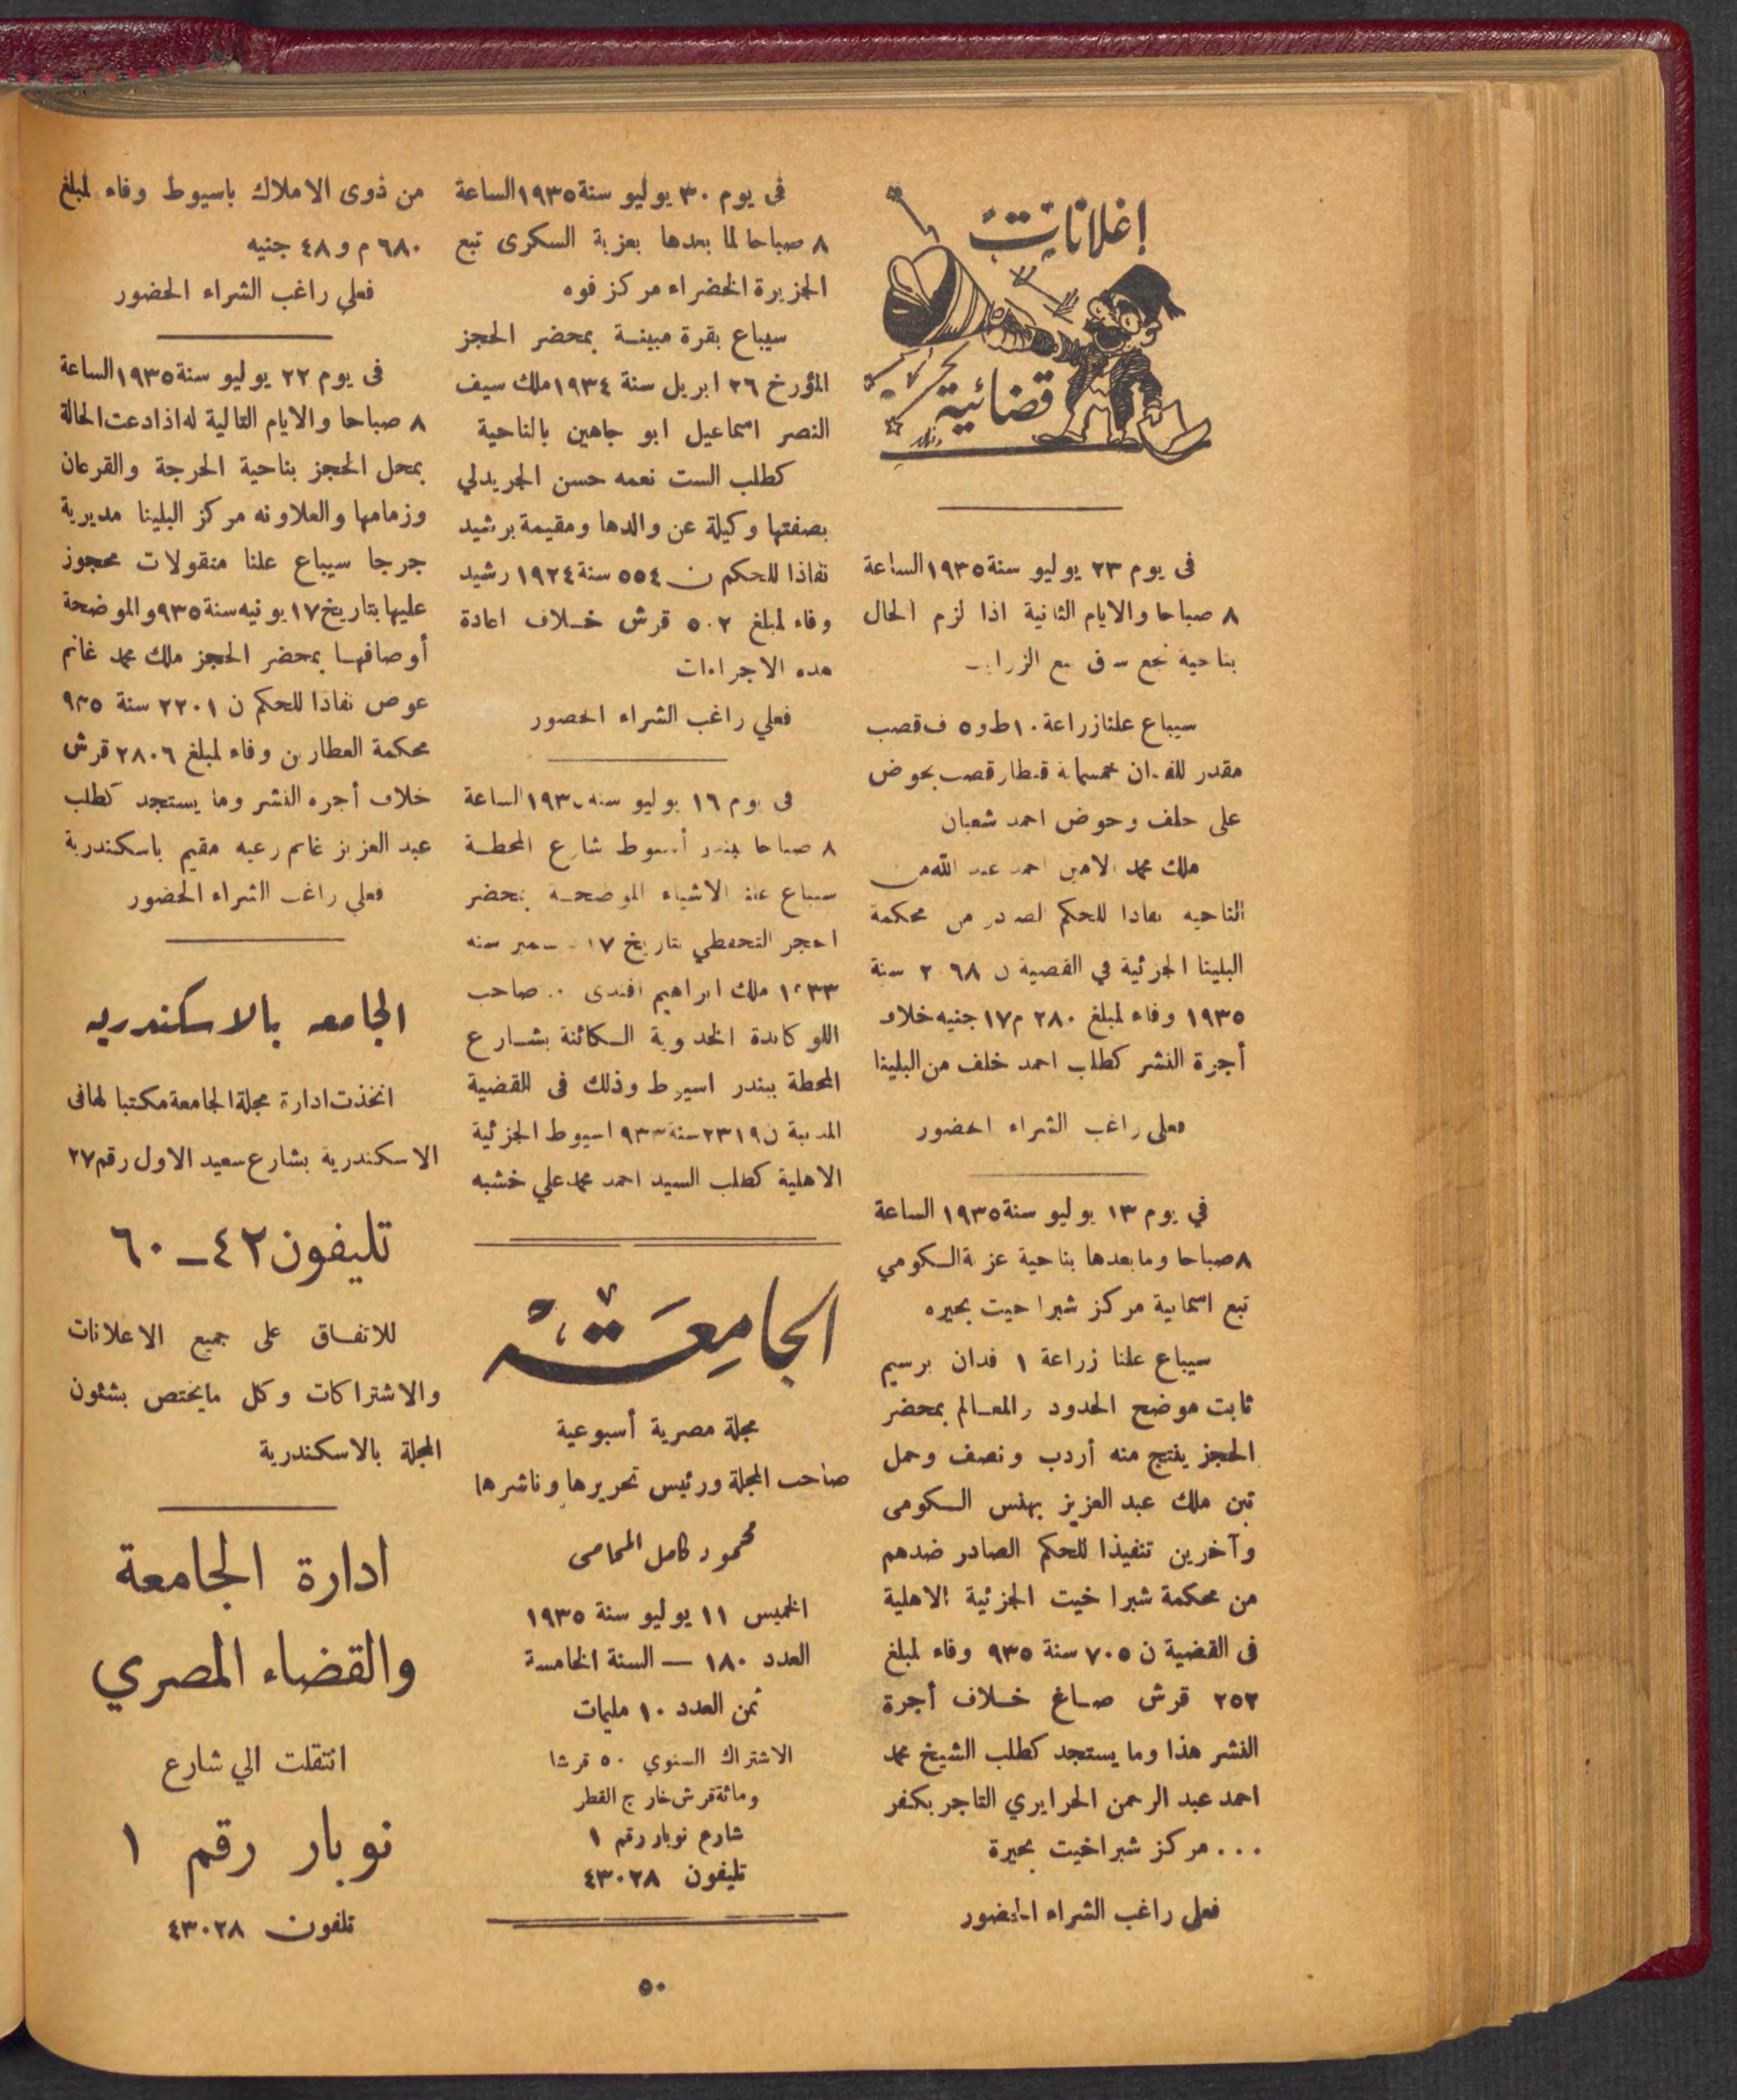 إعلانات
قضائية
فى يوم ٢٣ يوليو سنة ١٩٣٥ الساعة
٨ صباحا والايام الثانية اذا لزم الحال
بناحية نجع
سيباع علنا زراعة ١٠ ط و ٥ ف قصب
مقدر للفدان خمسماية قنطار قصب بحوض
على خلف وحوض احمد شعبان
ملك محمد الامين احمد عبد الله من
الناحيه نفاذا للحكم الصادر من محكمة
البلينا الجزئية في القضية ن ٢٠٦٨ سنة
١٩٣٥ وفاء لمبلغ ٢٨٠ م ١٧ جنيه خلاف
أجرة النشر كطلب احمد خلف من البلينا
فعلى راغب الشراء الحضور
في يوم ١٣ يوليو سنة ١٩٣٥ الساعة
٨ صباحا وما بعدها بناحية عزبة الكومي
تبع اسمانية مركز شبراخيت بحيره
سيباع علنا زراعة ١ فدان برسيم
ثابت موضح الحدود والمعالم بمحضر
الحجز ينتج منه أردب ونصف وحمل
تبن ملك عبد العزيز بهنس الكومى
وآخرين تنفيذا للحكم الصادر ضدهم
من محكمة شبرا خيت الجزئية الاهلية
فى القضية ن ٧٠٥ سنة ٩٣٥ وفاء لمبلغ
٢٥٢ قرش صاغ خلاف أجرة
النشر هذا وما يستجد كطلب الشيخ محمد
احمد عبد الرحمن الحرايري التاجر بكفر
... مركز شبراخيت بحيرة
فعلى راغب الشراء الحضور
فى يوم ٣٠ يوليو سنة ١٩٣٥ الساعة
٨ صباحا لما بعدها بعزبة السكرى تبع
الجزيرة الخضراء مركز فوه
سيباع بقرة مبينة بمحضر الحجز
المؤرخ ٢٦ ابريل سنة ١٩٣٤ ملك سيف
النصر اسماعيل ابو جاهين بالناحية
كطلب الست نعمه حسن الجريدلي
بصفتها وكيلة عن والدها ومقيمة برشيد
نفاذا للحكم ن ٥٥٤ سنة ١٩٢٤ رشيد
وفاء لمبلغ ٥٠٢ قرش خلاف اعادة
هده الاجراءات
فعلي راغب الشراء الحضور
فى يوم ١٦ يوليو سنه ١٩٣٥ الساعة
٨ صباحا ببندر أسيوط شارع المحطة
سيباع علنا الاشياء الموضحة بمحضر
الحجز التحفظي بتاريخ ١٧ ديسمبر سنه
١٩٣٣ ملك ابراهيم افندى .. صاحب
اللوكاندة الخديوية الكائنة بشارع
المحطة ببندر اسيوط وذلك فى القضية
المدنية ن ٢٣١٩ سنة ٩٣٣ اسيوط الجزئية
الاهلية كطلب السيد احمد محمد علي خشبه
الجامعة
مجلة مصرية أسبوعية
صاحب المجلة ورئيس تحريرها وناشرها
محمود كامل المحامى
الخميس ١١ يوليو سنة ١٩٣٥
العدد ١٨٠ — السنة الخامسة
ثمن العدد ١٠ مليمات
الاشتراك السنوي ٥٠ قرشا
ومائة قرش خارج القطر
شارع نوبار رقم ١
تليفون ٤٣٠٢٨
من ذوى الاملاك باسيوط وفاء لمبلغ
٦٨٠ م و ٤٨ جنيه
فعلي راغب الشراء الحضور
فى يوم ٢٢ يوليو سنة ١٩٣٥ الساعة
٨ صباحا والايام التالية له اذا دعت الحالة
بمحل الحجز بناحية الحرجة والقرعان
وزمامها والعلاونه مركز البلينا مديرية
جرجا سيباع علنا منقولات محجوز
عليها بتاريخ ١٧ يونيه سنة ٩٣٥ والموضحة
أوصافها بمحضر الحجز ملك محمد غانم
عوض نفاذا للحكم ن ٢٢٠١ سنة ٩٣٥
محكمة العطارين وفاء لمبلغ ٢٨٠٦ قرش
خلاف أجره النشر وما يستجد كطلب
عبد العزيز غانم رعيه مقيم باسكندرية
فعلي راغب الشراء الحضور
الجامعه بالاسكندريه
اتخذت ادارة مجلة الجامعة مكتبا لها فى
الاسكندرية بشارع سعيد الاول رقم ٢٧
تليفون ٤٢ – ٦٠
للاتفاق على جميع الاعلانات
والاشتراكات وكل مايختص بشئون
المجلة بالاسكندرية
ادارة الجامعة
والقضاء المصري
انتقلت الي شارع
نوبار رقم ١
تلفون ٤٣٠٢٨
٥٠